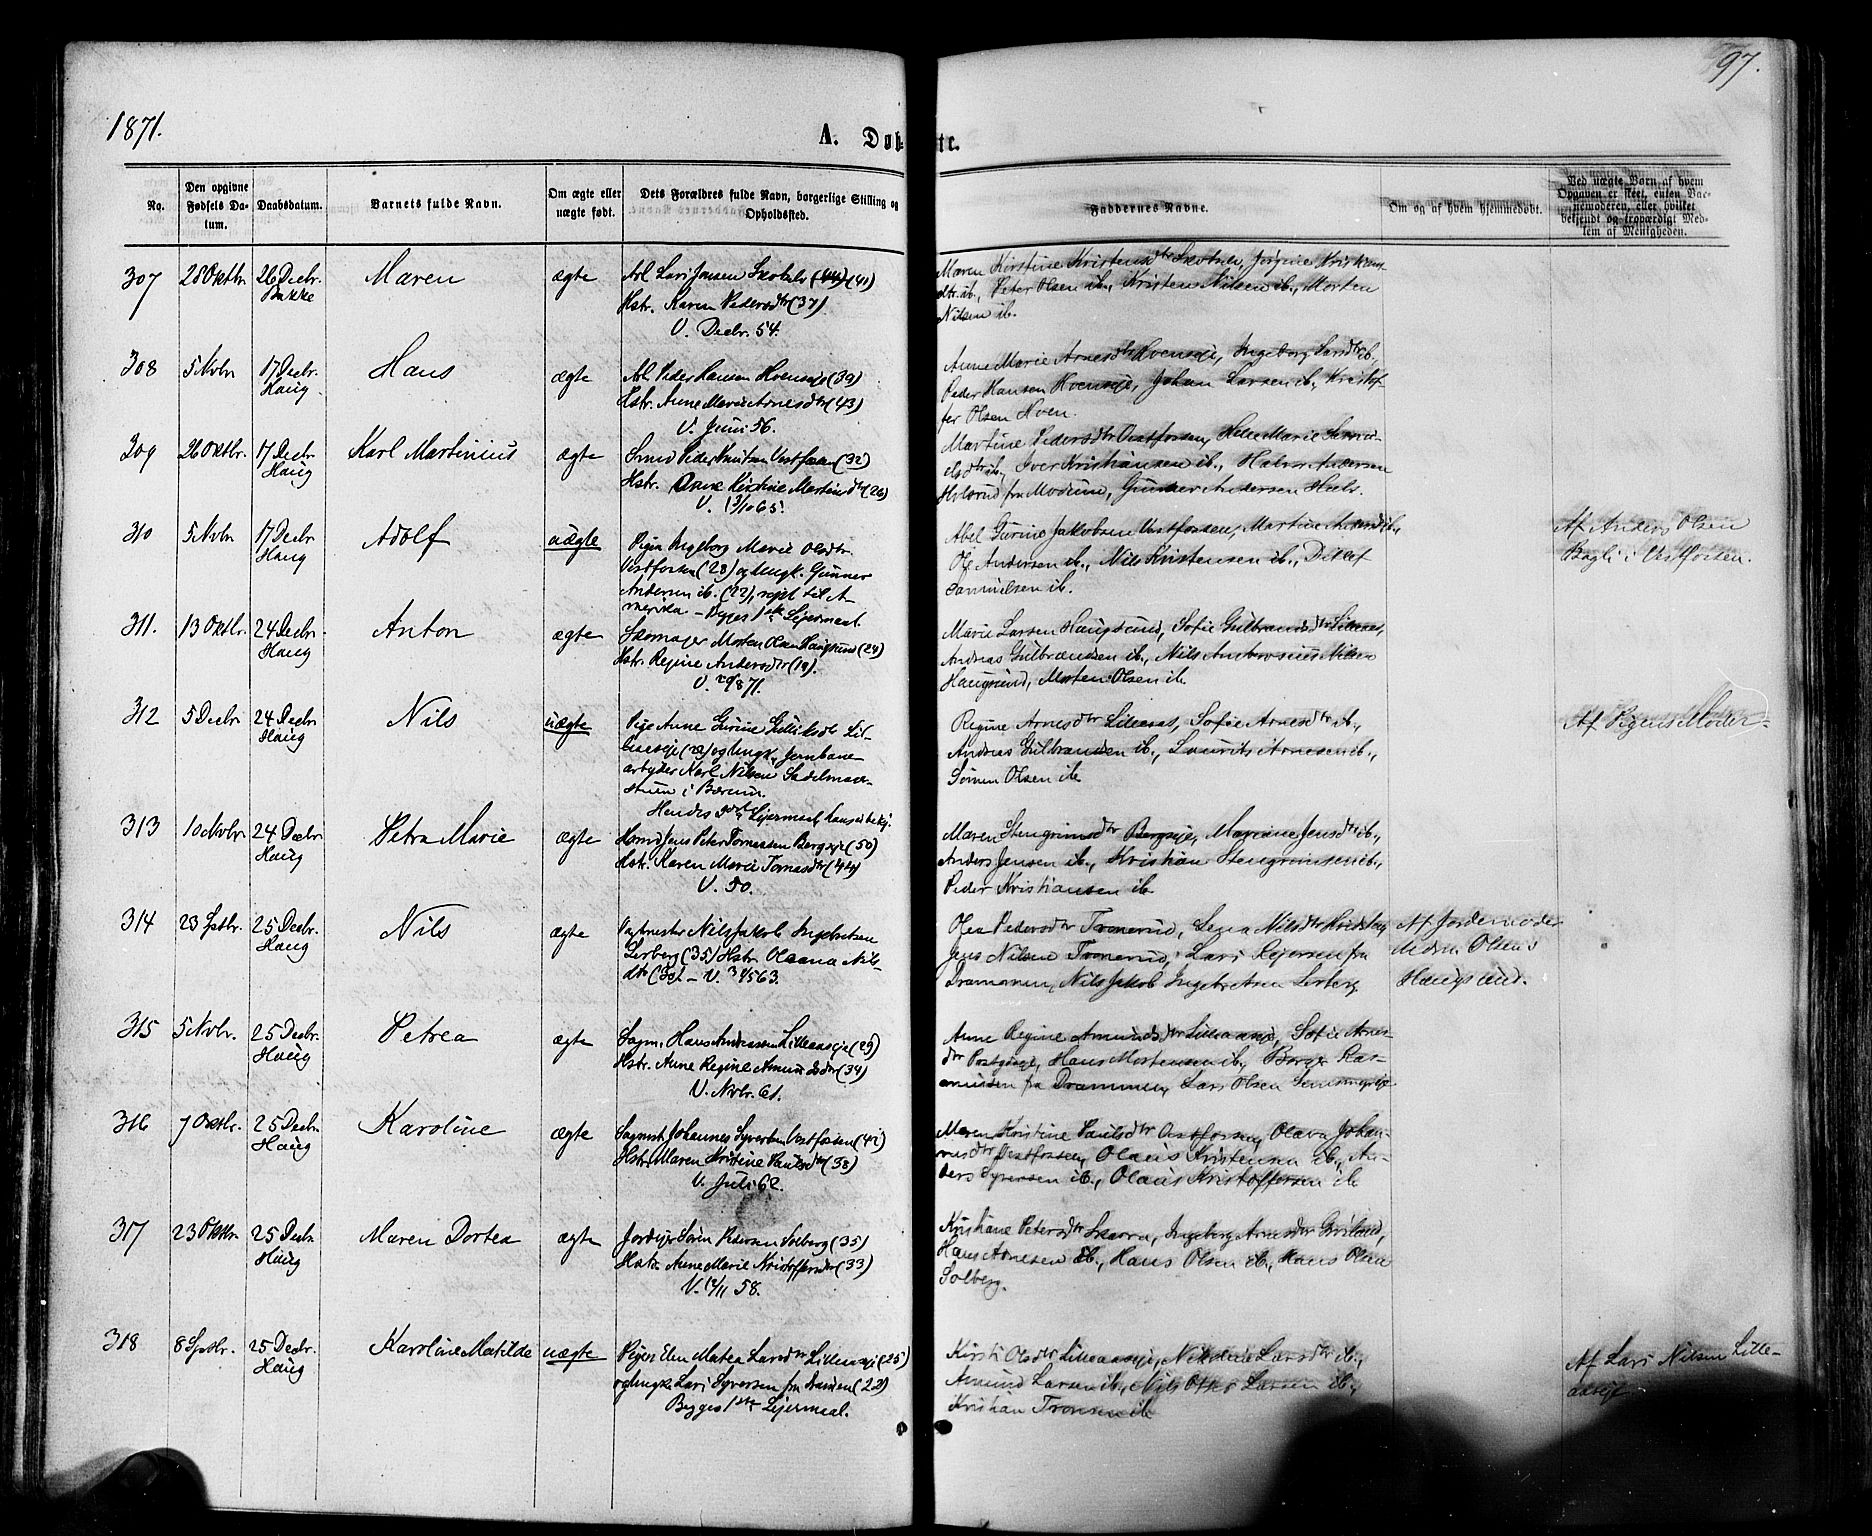 1871.
97.
A. Døbte.
No.
Den opgivne Fødsels Datum.
Daabsdatum.
Barnets fulde Navn.
Om ægte eller uægte født.
Dets Forældres fulde Navn, borgerlige Stilling og Opholdssted.
Faddernes Navne.
Om og af hvem hjemmedøbt.
Ved uægte Børn af hvem Opgaven er skeet, enten Barnemoderen, eller hvilket bekjendt og troværdigt Medlem af Menigheden.
307
28 Oktbr
26 Decbr.
Bakke
Maren
ægte
Arl Lars Jensen (41)
Hstr. Karen Pedersdtr (37)
V. Decbr. 54.
Maren Kirstine Kristensdtr
dtr. ib., Peter Olsen ib., Kristen Nilsen ib., Morten
Nilsen ib.
308
5 Nvbr
17 Decbr.
Haug
Hans
ægte
Arl Peder Hansen Hvenseje (39)
Hstr. Anne Marie Arnesdtr (43)
V. Juni 56.
Anne Marie Arnesdtr Hvenseje, Ingeborg Larsdtr ib.,
Peder Hansen Hvenseje, Johan Larsen ib., Kristof-
fer Olsen Hven.
309
26 Oktbr.
17 Decbr
Haug
Karl Martinius
ægte
Smed Peder Knutsen Vestfossen (32)
Hstr. Kirstine Martinsdtr (26)
V. 13/10 65.
Martine Pedersdtr Vestfossen, Helle Marie
Iver Kristiansen ib., Halvor Andersen
fra Modum, Gunner Andersen
310
5 Nvbr
17 Decbr
Haug
Adolf
uægte
Pigen Ingeborg Marie Olsdtr.
Vestfossen (28) og Ungk. Gunner
Andersen ib. (22), rejst til A-
merika – Begges 1ste Lejermaal
Abel Gurine Jakobsen Vestfossen, Martine
Ole Andersen ib., Nils Kristensen ib., Ditlef
Samuelsen ib.
Af Anders Olsen
i Vestfossen.
311.
13 Oktbr.
24 Decbr.
Haug
Anton
ægte
Skomager Morten Olsen Haugsund (24)
Hstr. Regine Andersdtr (19).
V. 871.
Marie Larsen Haugsund, Sofie Gulbrandsdtr
Andreas Gulbrandsen ib., Nils Ambrosius Nilsen
Haugsund, Morten Olsen ib
312
5 Decbr
24 Decbr
Haug
Nils
uægte
Pige Anne Gurine Gulliksdtr Lil-
og Ungk. Jernbane-
arbejder Karl Nilsen
i Bærum.
Hendes Lejermaal, hans
Regine Arnesdtr Lilleaas, Sofie Arnesdtr ib.,
Andreas Gulbrandsen ib., Laurits Arnesen ib.,
Olsen ib
Af Pigens Moder.
313
10 Nvbr.
24 Decbr
Haug
Petra Marie
ægte
Jens Peter Tomassen Bergseje (50)
Hstr. Karen Marie Tomasdtr (44)
V. 50.
Maren Stengrimsdtr Bergseje, Mariane Jensdtr ib.,
Anders Jensen ib., Kristian Stengrimsen ib.,
Peder Kristiansen ib
314
23 Sptbr.
25 Decbr.
Haug
Nils
ægte
Nils Jakob Ingebretsen
Lerberg (35) Hstr. Oleana Nils-
dtr
Olea Pedersdtr Tronerud, Lena Nilsdtr
Jens Nilsen Tronerud, Lars Rejersen fra
Drammen, Nils Jakob Ingebretsen Lerberg
Af Jordemoder
Olsens
Haugsund.
315
5 Nvbr.
25 Decbr.
Haug
Petrea
ægte
Sagm. Hans Andreasen Lilleaaseje (29)
Hstr. Anne Regine Amundsdtr (34)
V. Nvbr. 61.
Anne Regine Amundsdtr Lilleaaseje, Sofie Arnes-
dtr Hans Mortensen ib., Ras-
mussen fra Drammen, Lars Olsen
316
7 Oktbr.
25 Decbr.
Haug
Karoline
ægte
Sagmst. Johannes Syvertsen Vestfossen (42)
Hstr. Maren Kristine Paulsdtr (38)
V. Juli 62.
Maren Kristine Paulsdtr Vestfossen, Olava Johan-
nesdtr Vestfossen, Olaus Kristensen ib., An-
ders Syversen ib., Olaus Kristoffersen ib
317
23 Oktbr.
25 Decbr
Haug
Maren Dortea
ægte
Jordejer Søren Pedersen Solberg (35)
Hstr. Anne Marie Kristoffersdtr (33)
V. 12/11 58.
Kristiane Petersdtr Skarra, Ingeborg Arnesdtr
Hans Arnesen ib., Hans Olsen ib., Hans Olsen
Solberg.
318
8 Sptbr.
25 Decbr.
Haug
Karoline Matilde
uægte
Pigen Elen Matea Larsdtr Lilleaaseje (25)
og Ungk. Lars Syversen fra Drammen (22)
Begges 1ste Lejermaal.
Kirsti Olsdtr Lilleaaseje, Nikoline Larsdtr ib.,
Amund Larsen ib., Nils Larsen ib.,
Kristian Tronsen ib
Af Lars Nilsen Lille-
aaseje